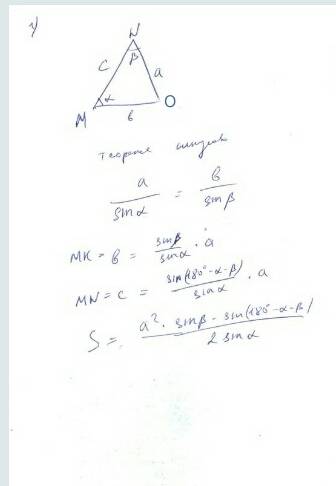 1)
N
c
β
a
α
M
в
O
теорема синусов
a / sinα = в / sinβ
MK = в = sinβ / sinα · a
MN = c = sin(180° - α - β) / sinα · a
S = a² · sinβ - sin(180° - α - β) / 2 sinα